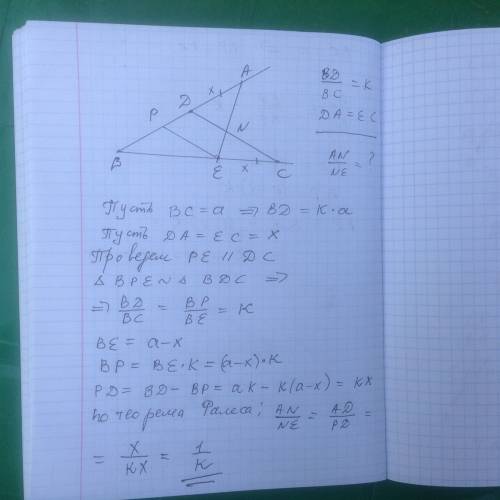 A
x
D
P
N
B
E
x
C
BD/BC = K
DA = EC
AN/NE = ?
Пусть BC = a ⇒ BD = K·a
Пусть DA = EC = X
Проведем PE || DC
△ BPE ~ △ BDC ⇒
⇒ BD/BC = BP/BE = K
BE = a-x
BP = BE·K = (a-x)·K
PD = BD - BP = aK - K(a-x) = KX
по теорема Фалеса; AN/NE = AD/PD =
= X/KX = 1/K